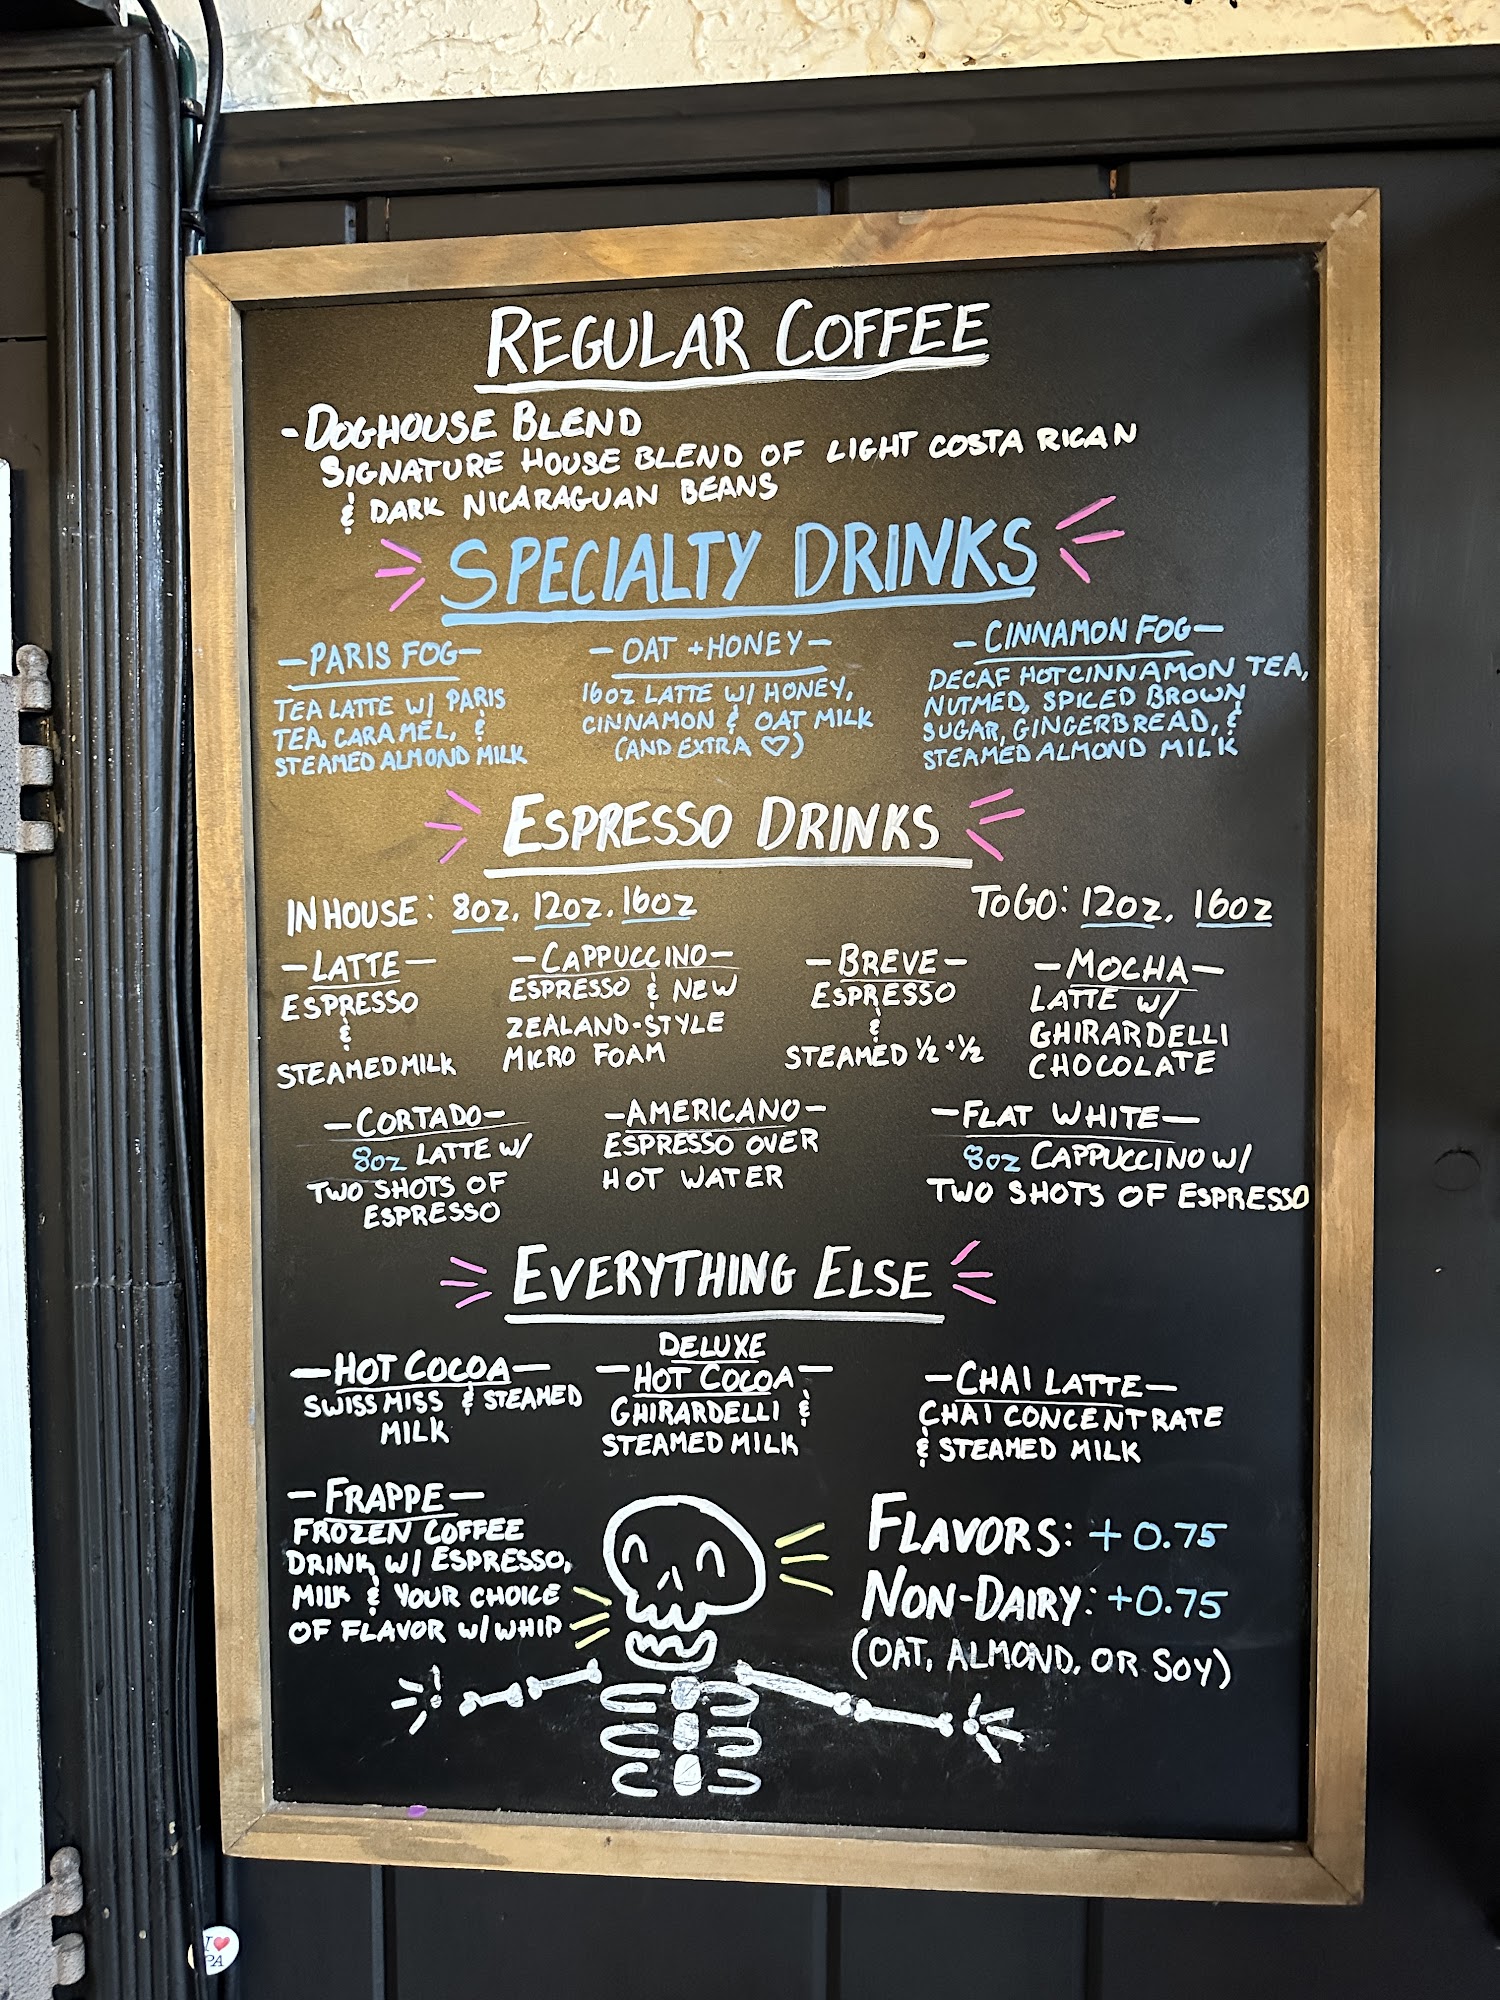 REGULAR COFFEE
- DOGHOUSE BLEND
SIGNATURE HOUSE BLEND OF LIGHT COSTA RICAN
& DARK NICARAGUAN BEANS
SPECIALTY DRINKS
- PARIS FOG -
TEA LATTE W/ PARIS
TEA, CARAMEL, &
STEAMED ALMOND MILK
- OAT + HONEY -
16oz LATTE W/ HONEY,
CINNAMON & OAT MILK
(AND EXTRA ♡)
- CINNAMON FOG -
DECAF HOT CINNAMON TEA,
NUTMED, SPICED BROWN
SUGAR, GINGERBREAD, &
STEAMED ALMOND MILK
ESPRESSO DRINKS
IN HOUSE: 8oz, 12oz, 16oz
TO GO: 12oz, 16oz
- LATTE -
ESPRESSO
&
STEAMED MILK
- CAPPUCCINO -
ESPRESSO & NEW
ZEALAND-STYLE
MICRO FOAM
- BREVE -
ESPRESSO
&
STEAMED 1/2 + 1/2
- MOCHA -
LATTE W/
GHIRARDELLI
CHOCOLATE
- CORTADO -
8oz LATTE W/
TWO SHOTS OF
ESPRESSO
- AMERICANO -
ESPRESSO OVER
HOT WATER
- FLAT WHITE -
8oz CAPPUCCINO W/
TWO SHOTS OF ESPRESSO
EVERYTHING ELSE
- HOT COCOA -
SWISS MISS & STEAMED
MILK
DELUXE
- HOT COCOA -
GHIRARDELLI &
STEAMED MILK
- CHAI LATTE -
CHAI CONCENTRATE
& STEAMED MILK
- FRAPPE -
FROZEN COFFEE
DRINK W/ ESPRESSO,
MILK & YOUR CHOICE
OF FLAVOR W/ WHIP
FLAVORS: + 0.75
NON-DAIRY: +0.75
(OAT, ALMOND, OR SOY)
I ♥
PA